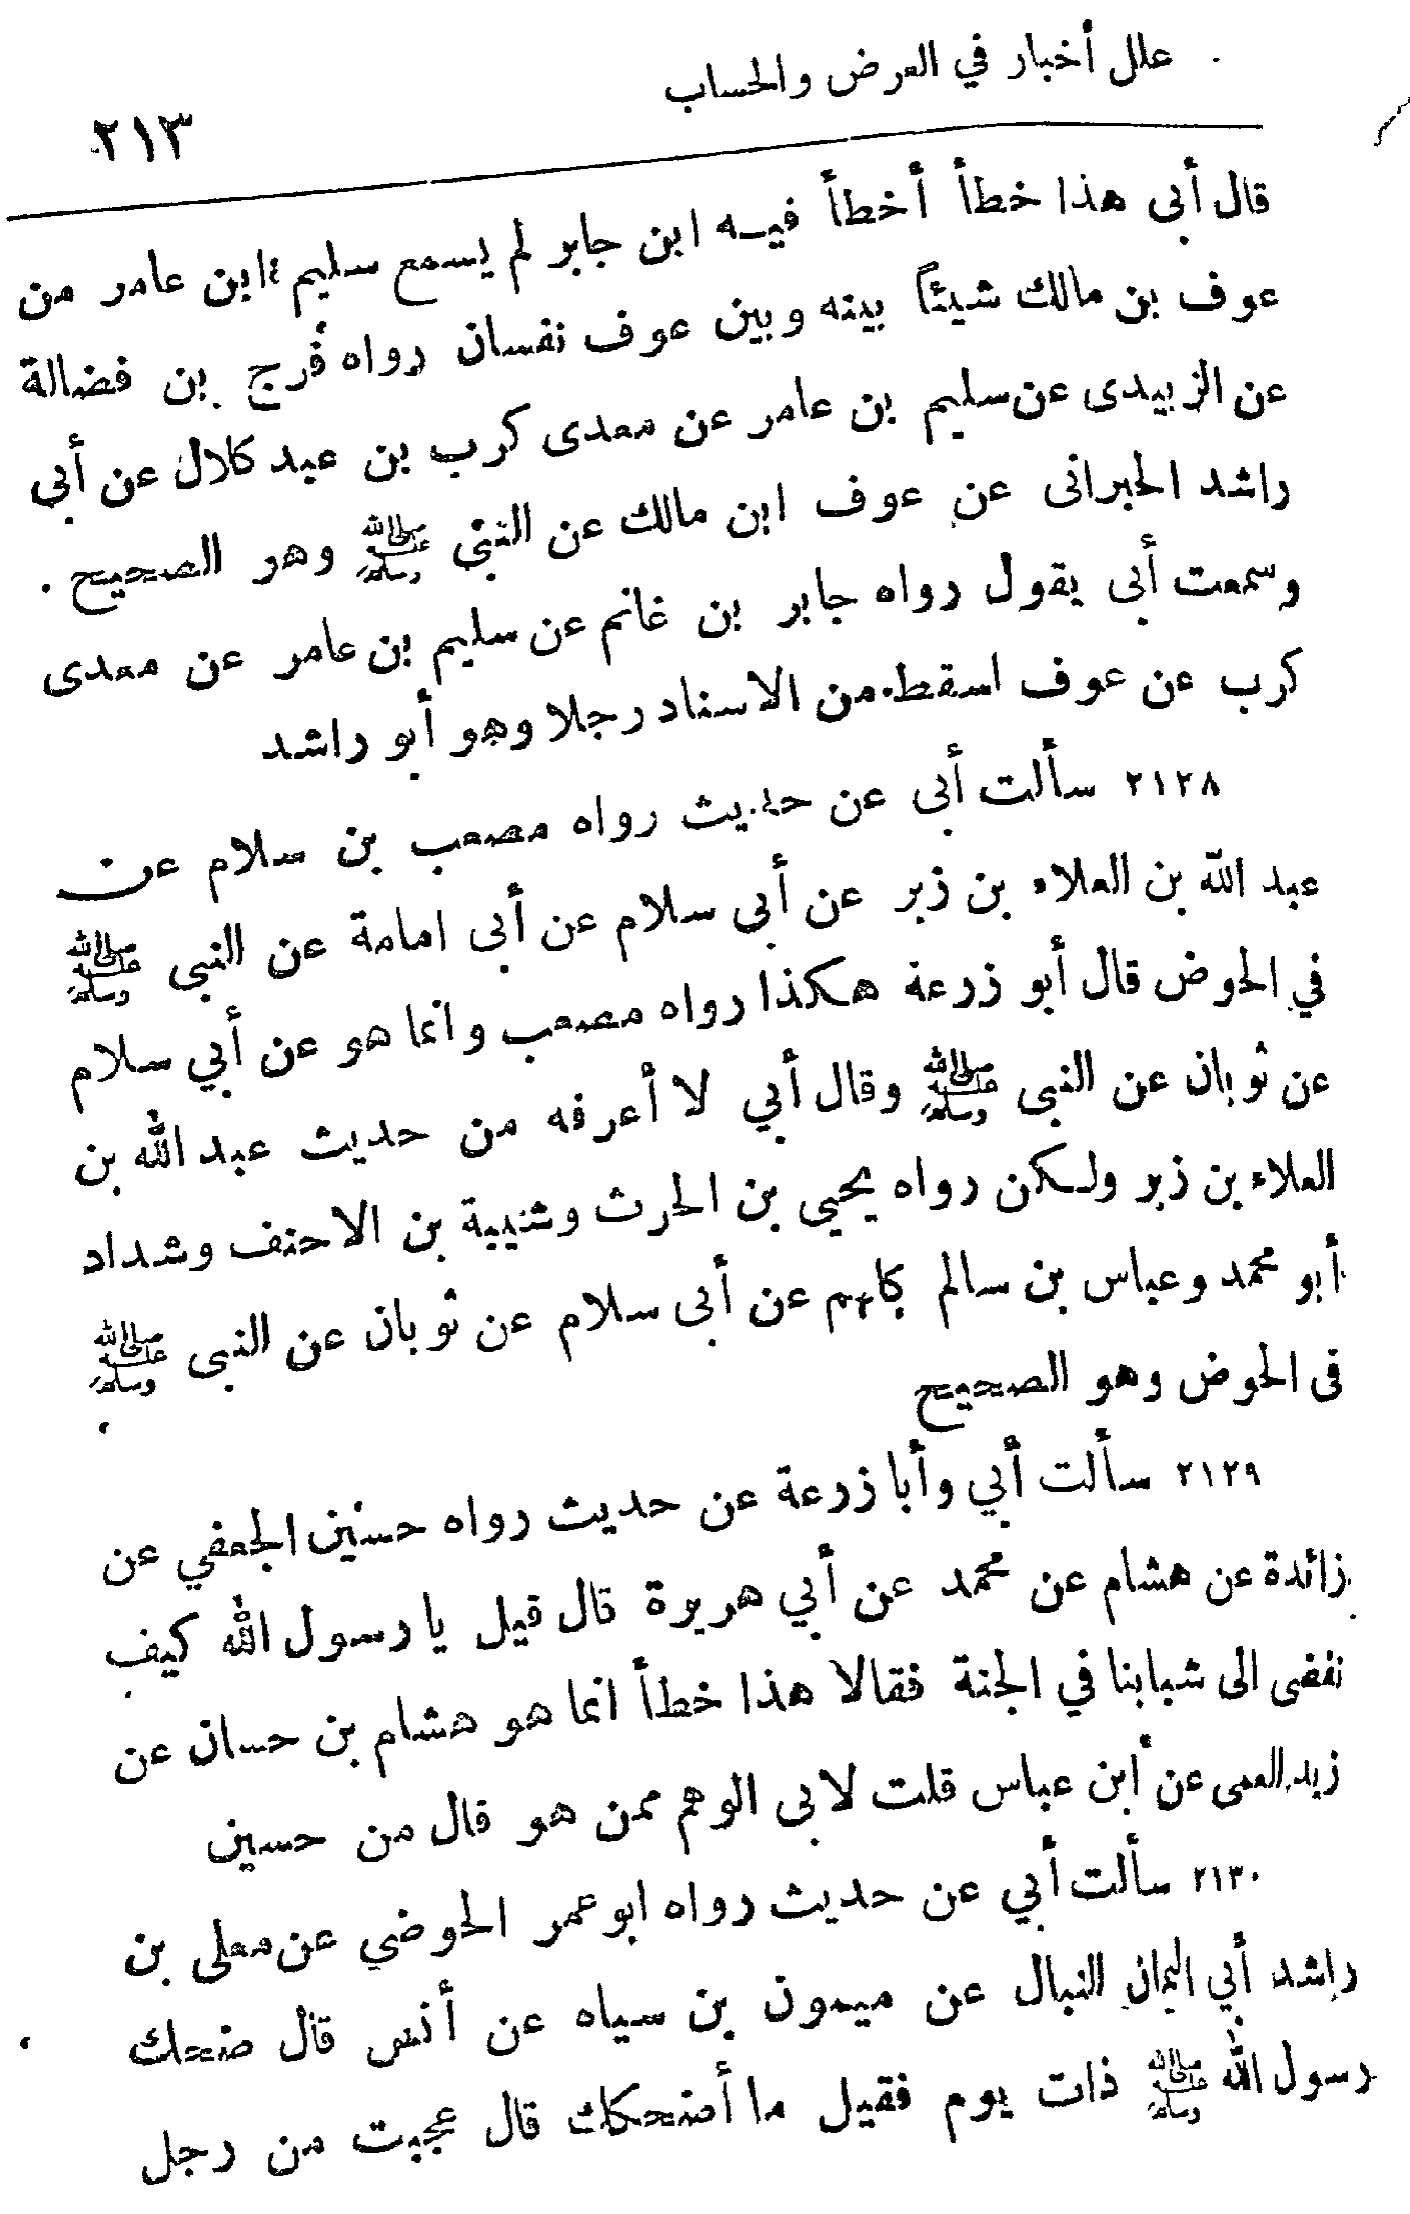 علل أخبار في العرض والحساب
٢١٣
قال أبى هذا خطأ أخطأ فيه ابن جابر لم يسمع سليم ابن عامر من
عوف بن مالك شيئاً بينه وبين عوف نفسان رواه فرج بن فضالة
عن الزبيدى عن سليم بن عامر عن معدى كرب بن عبد كلال عن أبي
راشد الحبرانى عن عوف ابن مالك عن النبي ﷺ وهر الصحيح .
وسمعت أبى يقول رواه جابر بن غانم عن سليم بن عامر عن معدى
كرب عن عوف اسقط من الاسناد رجلا وهو أبو راشد
٢١٢٨ سألت أبى عن حديث رواه مصعب بن سلام عن
عبد الله بن العلاء بن زبر عن أبي سلام عن أبى امامة عن النبى ﷺ
في الحوض قال أبو زرعة هكذا رواه مصعب وانما هو عن أبي سلام
عن ثوبان عن النبى ﷺ وقال أبي لا أعرفه من حديث عبد الله بن
العلاء بن زبر ولكن رواه يحيي بن الحرث وشيبة بن الاحنف وشداد
أبو محمد وعباس بن سالم كلهم عن أبى سلام عن ثوبان عن النبى ﷺ
فى الحوض وهو الصحيح
٢١٢٩ سألت أبي وأبا زرعة عن حديث رواه حسين الجعفي عن
زائدة عن هشام عن محمد عن أبي هريرة قال قيل يا رسول الله كيف
نفضى الى شبابنا في الجنة فقالا هذا خطأ انما هو هشام بن حسان عن
زيد العمى عن ابن عباس قلت لابى الوهم ممن هو قال من حسين
٢١٣٠ سألت أبي عن حديث رواه ابو عمر الحوضي عن معلى بن
راشد أبي اليمان النبال عن ميمون بن سياه عن أنس قال ضحك
رسول الله ﷺ ذات يوم فقيل ما أضحكك قال عجبت من رجل